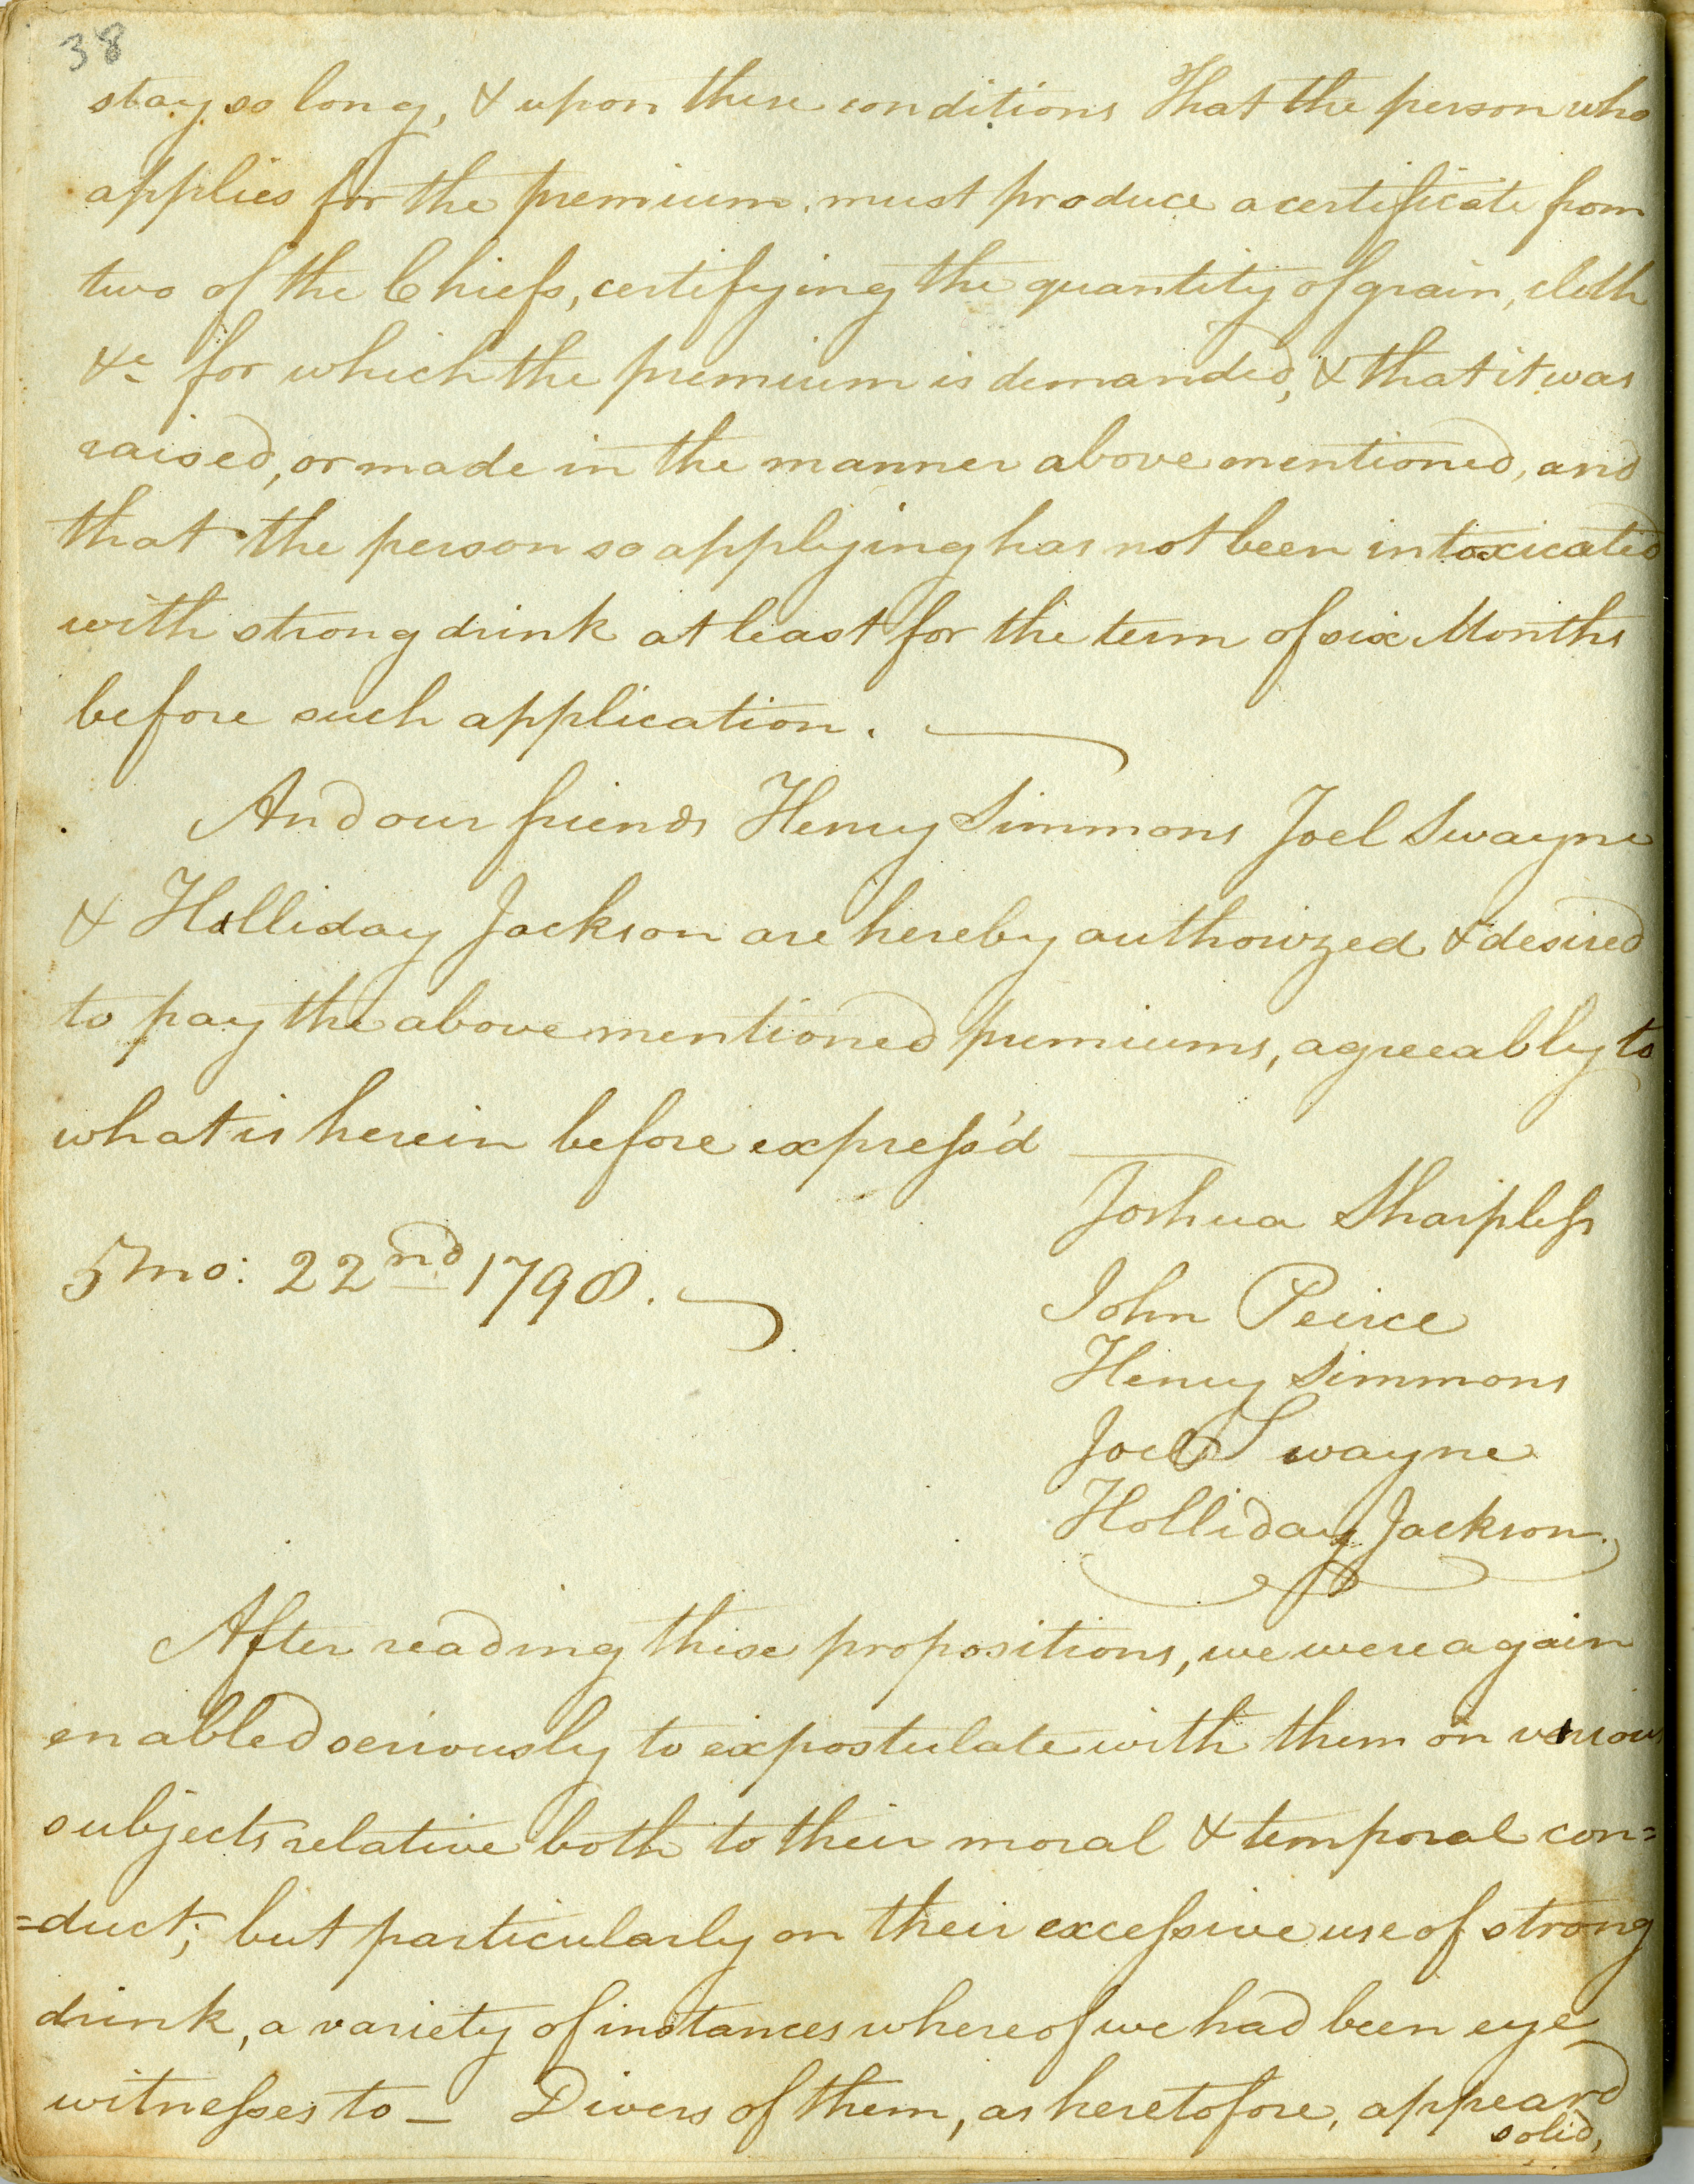 38
stay so long, & upon these conditions That the person who
applies for the premium, must produce a certificate from
two of the Chiefs, certifying the quantity of grain, cloth
&c for which the premium is demanded, & that it was
raised, or made in the manner above mentioned, and
that the person so applying has not been intoxicated
with strong drink at least for the term of six Months
before such application.
And our friends Henry Simmons Joel Swayne
& Holliday Jackson are hereby authorized & desired
to pay the above mentioned premiums, agreeably to
what is herein before express'd
Joshua Sharpless
5 mo: 22nd 1798.
John Peirce
Henry Simmons
Joel Swayne
Holliday Jackson.
After reading these propositions, we were again
enabled seriously to expostulate with them on various
subjects relative both to their moral & temporal con=
=duct; but particularly on their excessive use of strong
drink, a variety of instances whereof we had been eye
witnesses to — Divers of them, as heretofore, appeard
solid,